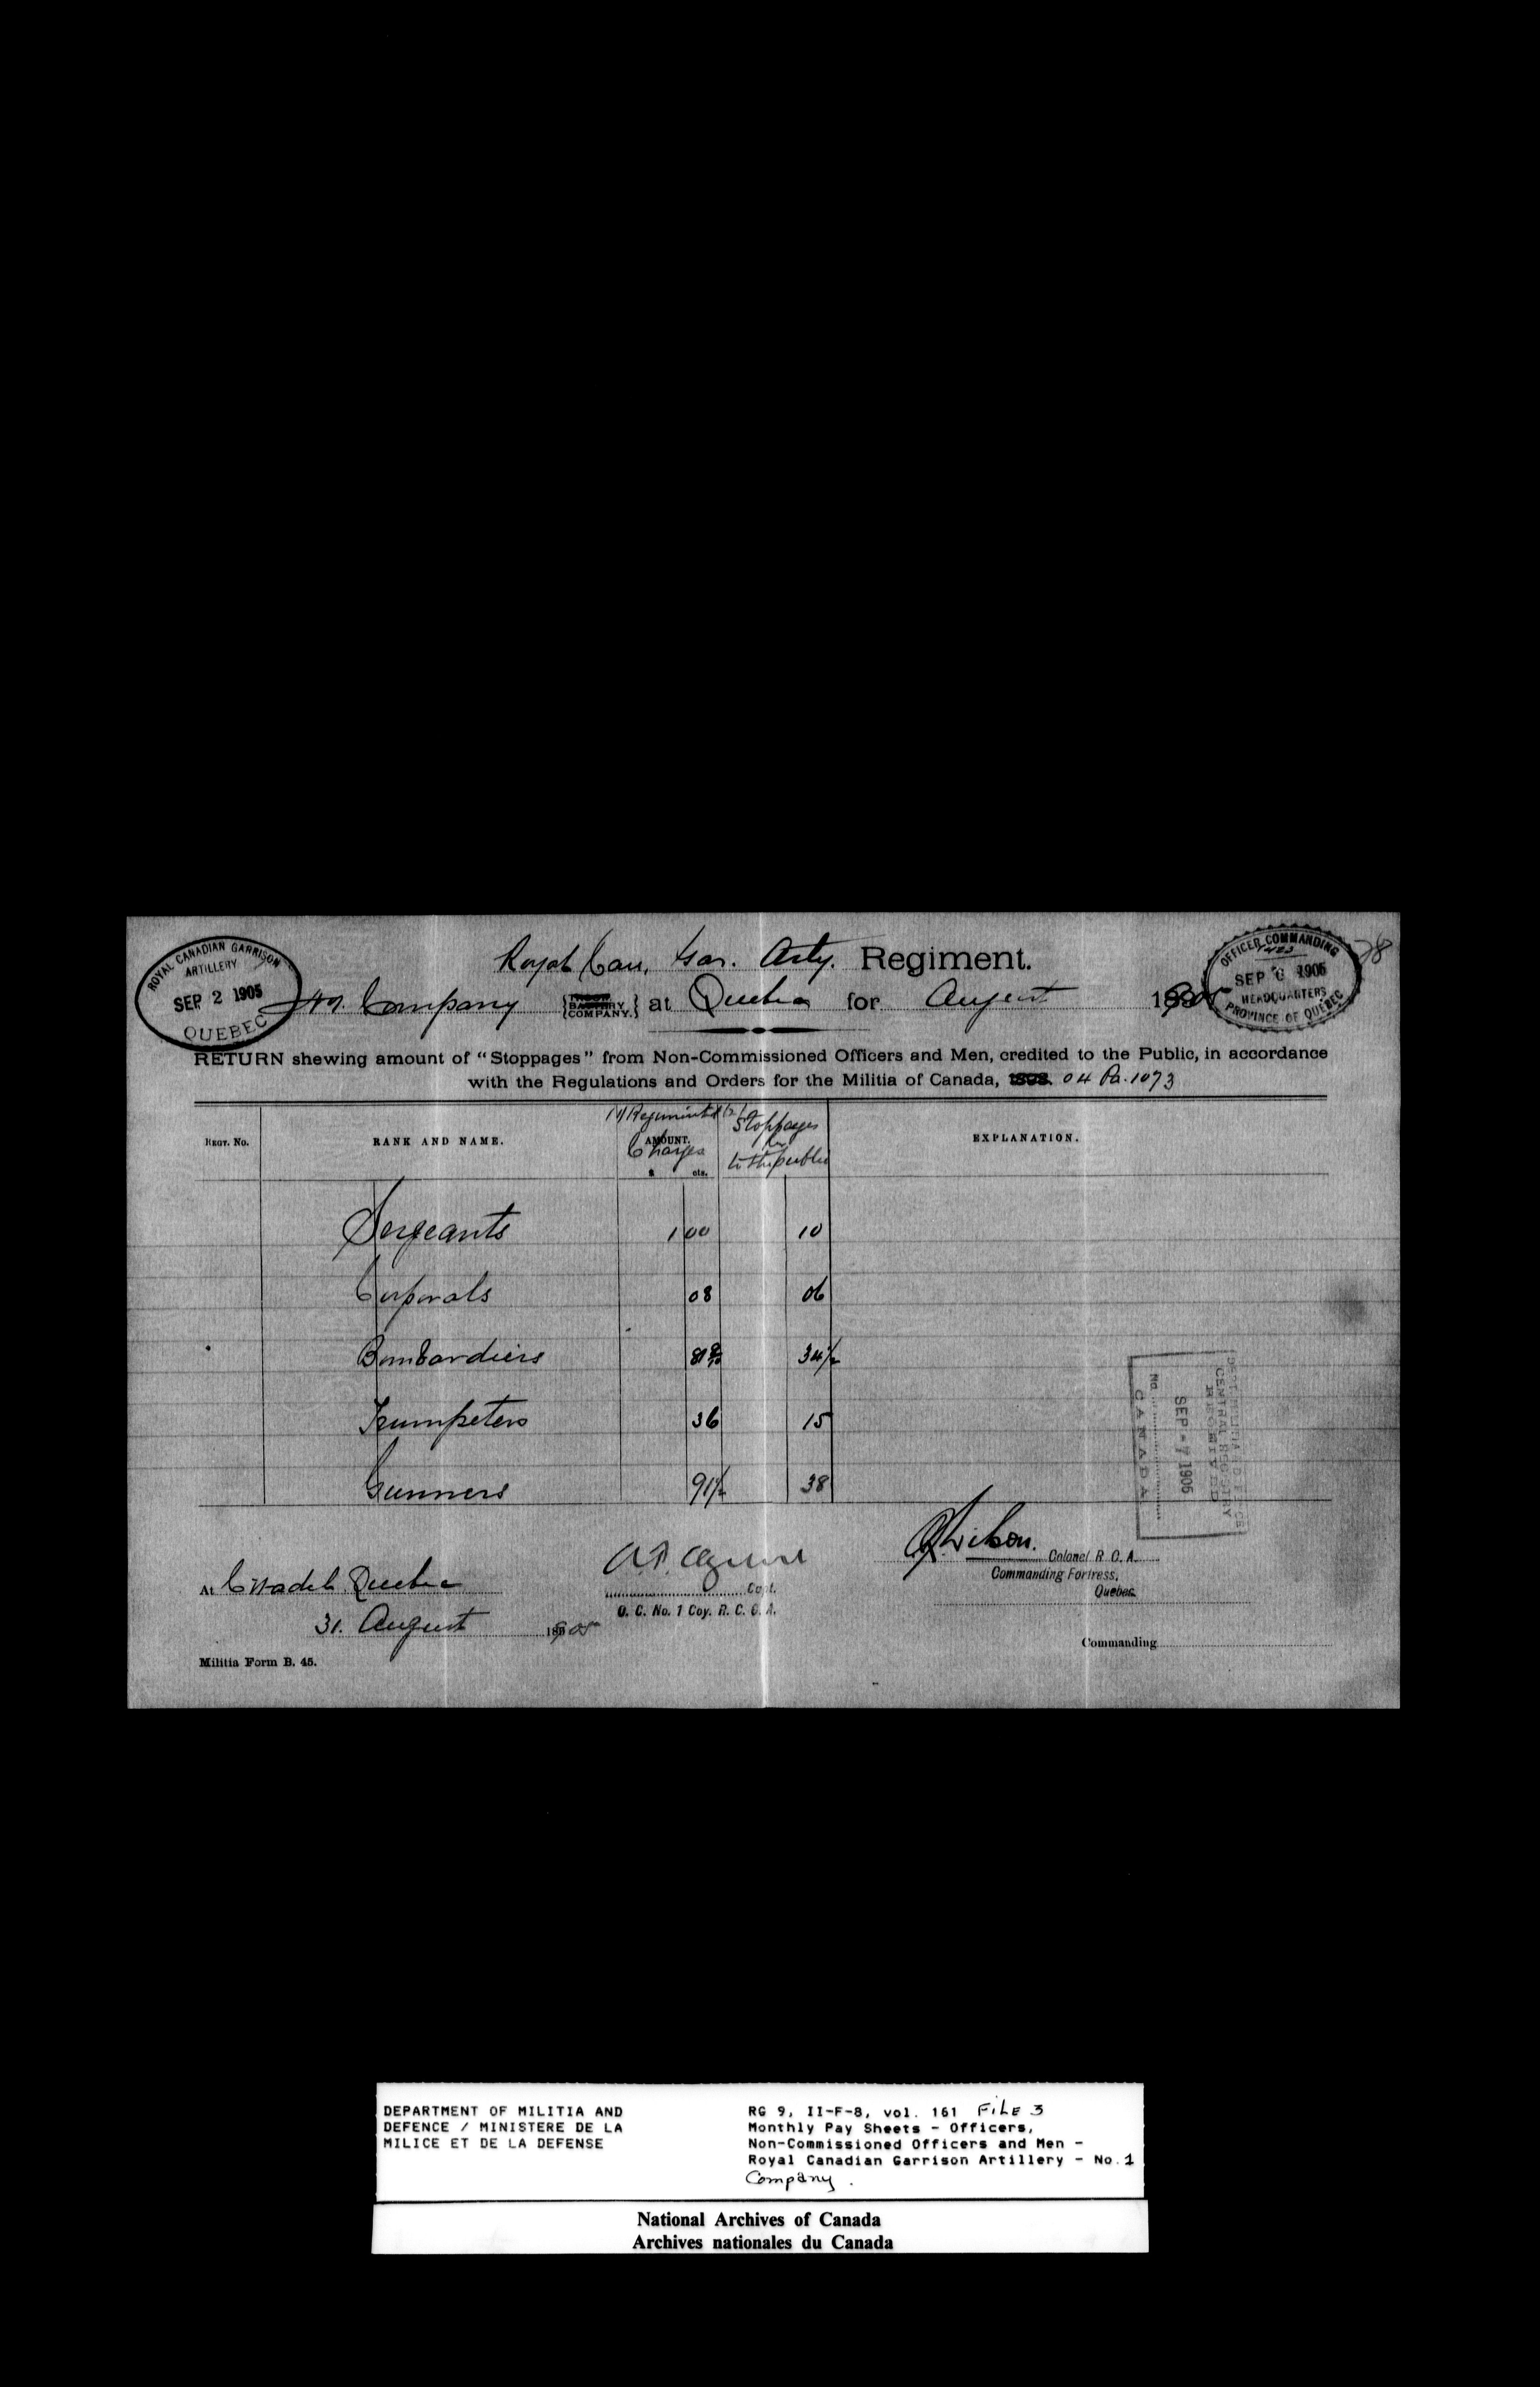 ROYAL CANADIAN GARRISON
ARTILLERY
SEP 2 1905
QUEBEC
Royal Can. Gar. Arty. Regiment.
OFFICER COMMANDING
SEP 6 1905
HEADQUARTERS
PROVINCE OF QUEBEC
78
Company {TROOP BATTERY COMPANY.} at Quebec for August 1905
RETURN shewing amount of "Stoppages" from Non-Commissioned Officers and Men, credited to the Public, in accordance
with the Regulations and Orders for the Militia of Canada, 1898. 04 Pa. 1073
REGT. No. RANK AND NAME. (1) Regimental Charges AMOUNT. $ cts. (2) Stoppages to the public EXPLANATION.
Sergeants 1 00 10
Corporals 08 06
Bombardiers 34½
Trumpeters 36 15
Gunners 91½ 38
CENTRAL REGISTRY
RECEIVED
SEP - 7 1905
No.
CANADA
Wilson. Colonel R. C. A.
Commanding Fortress,
Quebec
At Citadel Quebec
31. August 1905
Capt.
O. C. No. 1 Coy. R. C. G. A.
Commanding
Militia Form B. 45.
DEPARTMENT OF MILITIA AND
DEFENCE / MINISTERE DE LA
MILICE ET DE LA DEFENSE
RG 9, II-F-8, vol. 161 FILE 3
Monthly Pay Sheets - Officers,
Non-Commissioned Officers and Men -
Royal Canadian Garrison Artillery - No. 1
Company.
National Archives of Canada
Archives nationales du Canada